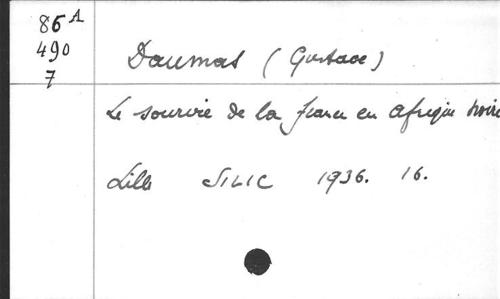 86 A
490
7
Daumas (Gustave)
Le sourire de la france en afrique noire
Lille SILIC 1936. 16.